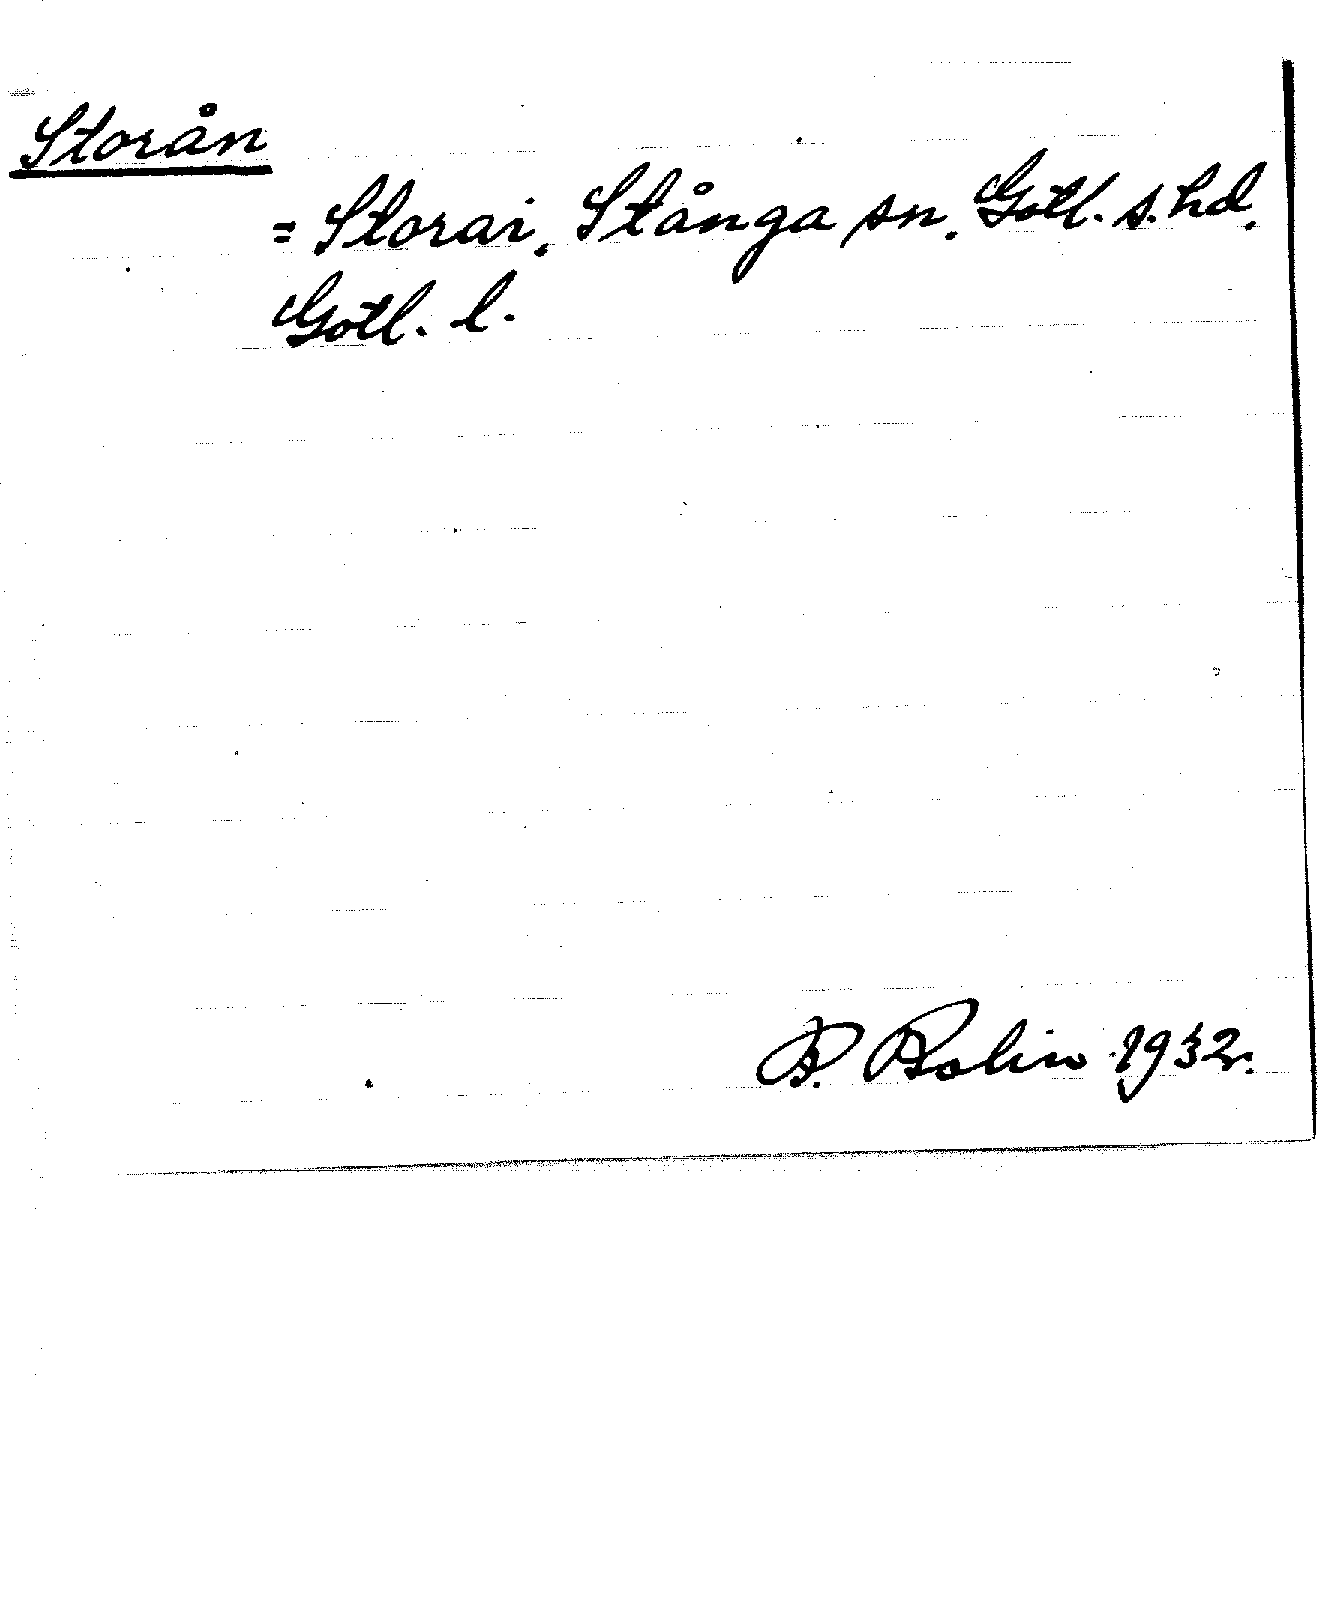 Storån
= Storai, Stånga sn, Gotl. s. hd,
Gotl. l.
B. Bolin 1932.